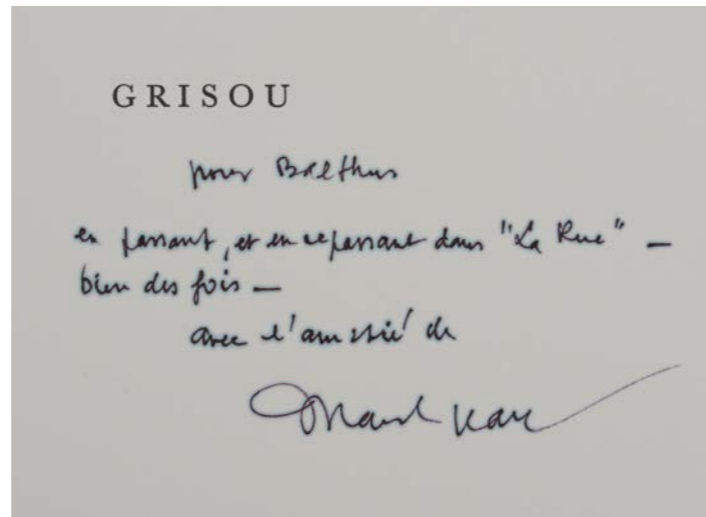 GRISOU
pour Balthus
en passant, et en repassant dans "La Rue" —
bien des fois —
avec l'amitié de